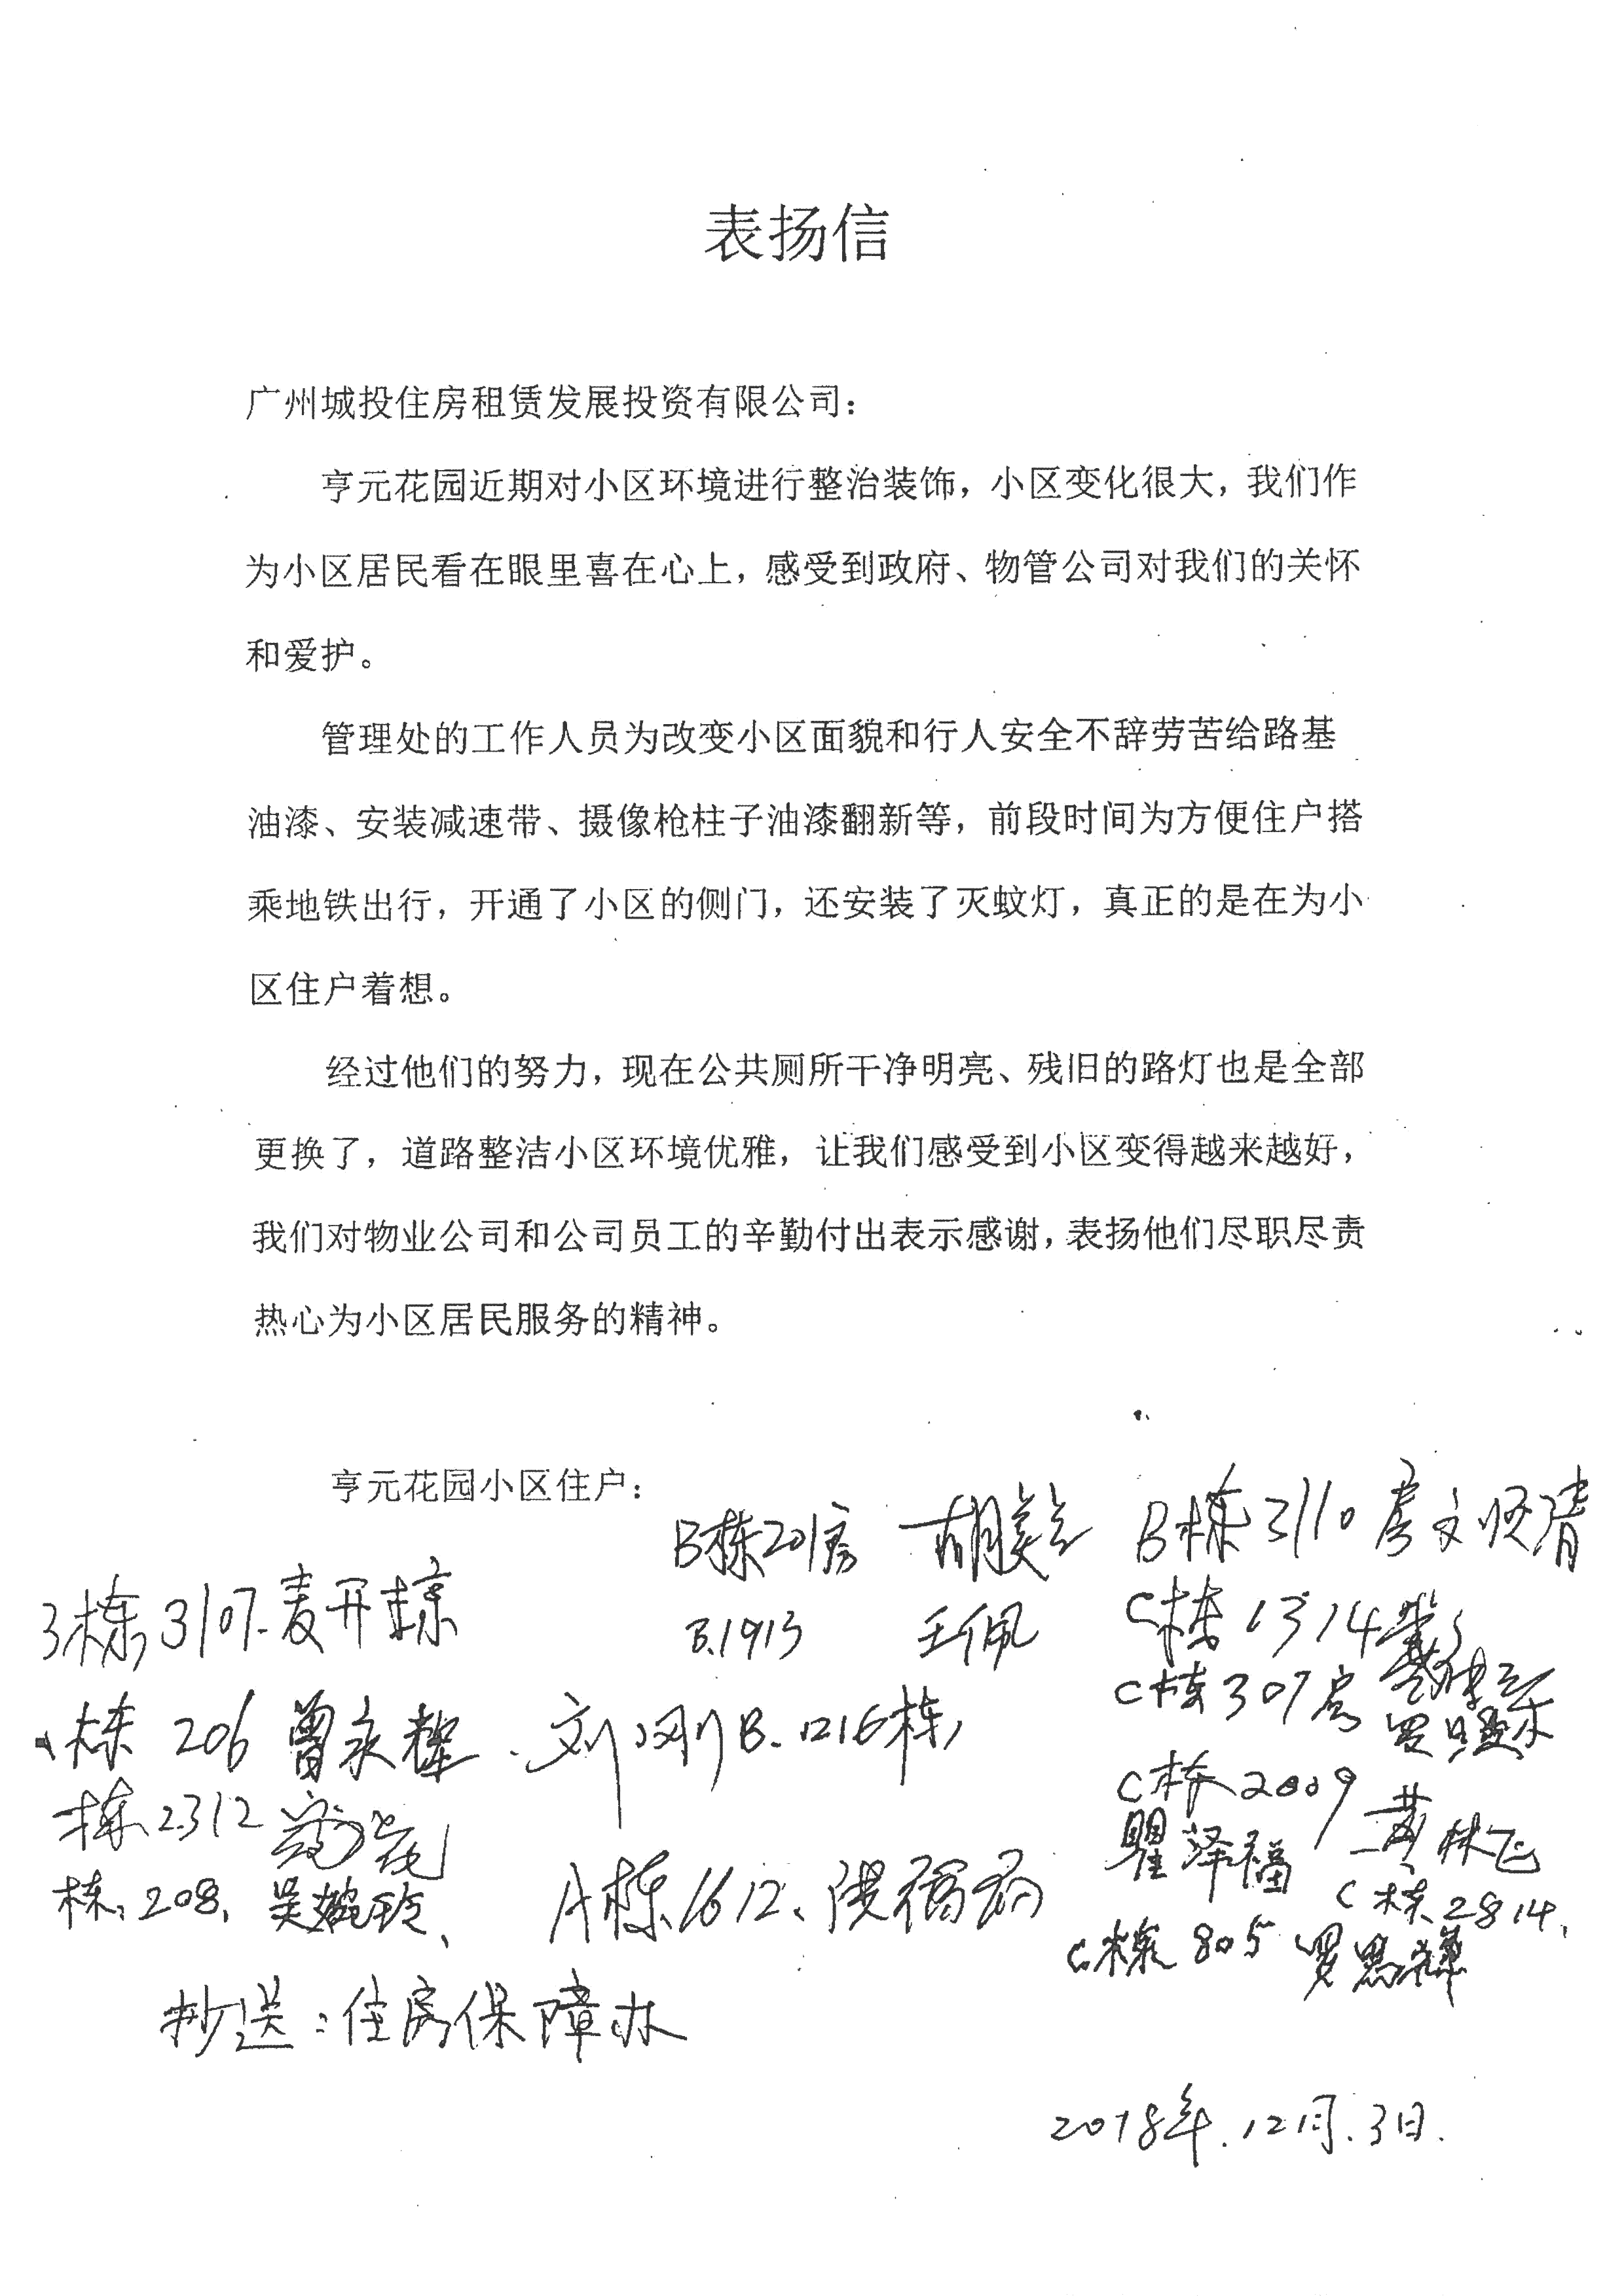 表扬信
广州城投住房租赁发展投资有限公司：
亨元花园近期对小区环境进行整治装饰，小区变化很大，我们作
为小区居民看在眼里喜在心上，感受到政府、物管公司对我们的关怀
和爱护。
管理处的工作人员为改变小区面貌和行人安全不辞劳苦给路基
油漆、安装减速带、摄像枪柱子油漆翻新等，前段时间为方便住户搭
乘地铁出行，开通了小区的侧门，还安装了灭蚊灯，真正的是在为小
区住户着想。
经过他们的努力，现在公共厕所干净明亮、残旧的路灯也是全部
更换了，道路整洁小区环境优雅，让我们感受到小区变得越来越好，
我们对物业公司和公司员工的辛勤付出表示感谢，表扬他们尽职尽责
热心为小区居民服务的精神。
亨元花园小区住户：
B栋201房 胡美 B栋3110房
栋3107.麦开 B.1913 王佩 C栋1314
C栋307房
栋 206 曾永 刘刚B.1216栋
栋2312 C栋2009
瞿泽福 黄林飞
栋：208、吴婉玲、 A栋1612、 C栋2814.
C栋805 罗
抄送：住房保障办
2018年.12月.3日.